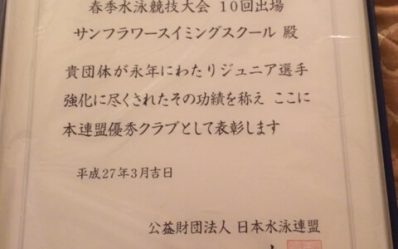 春季水泳競技大会 10回出場
サンフラワースイミングスクール 殿
貴団体が永年にわたりジュニア選手
強化に尽くされたその功績を称え ここに
本連盟優秀クラブとして表彰します
平成27年3月吉日
公益財団法人 日本水泳連盟